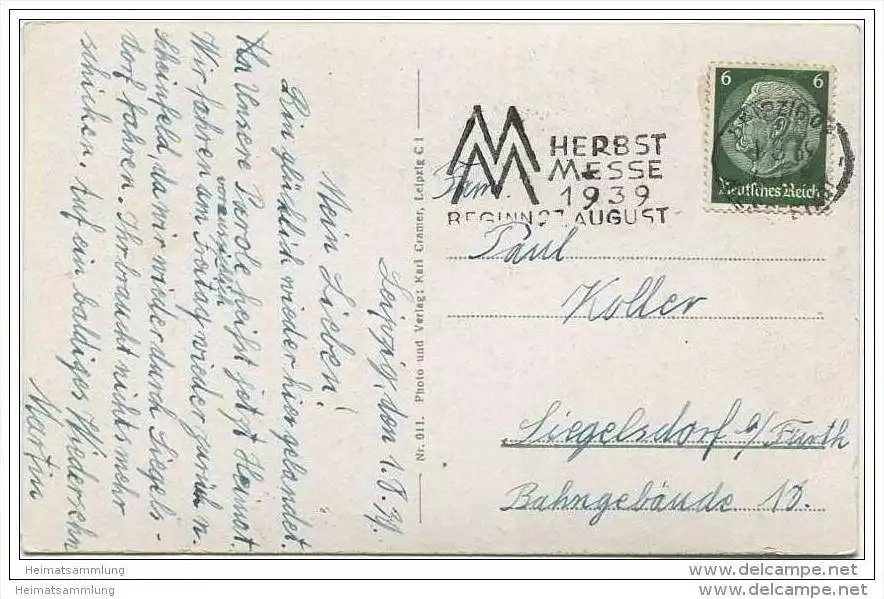 Leipzig, den 1.8.39.
Mein Lieben!
Bin glücklich wieder hier gelandet.
Unsere Parole heißt jetzt Heimat.
voraussichtlich
Wir fahren am Freitag wieder zurück n.
Scheinfeld, da wir wieder durch Siegels-
dorf fahren. Ihr braucht nichts mehr
schicken. Auf ein baldiges Wiedersehn
Martin
Nr. 911. Photo und Verlag: Karl Cramer, Leipzig C 1
HERBST
MESSE
1939
BEGINN 27. AUGUST
6 6
Deutsches Reich
LEIPZIG
Fam.
Paul
Koller
Siegelsdorf b/Fürth
Bahngebäude 13.
Heimatsammlung
Heimatsammlung
www.delcampe.net
www.delcampe.net